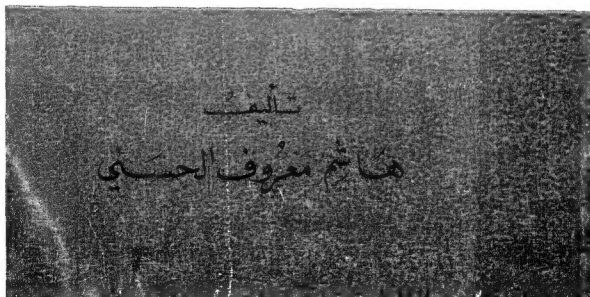 تأليف
هاشم معروف الحسني